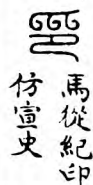 馬從紀印
仿宣史